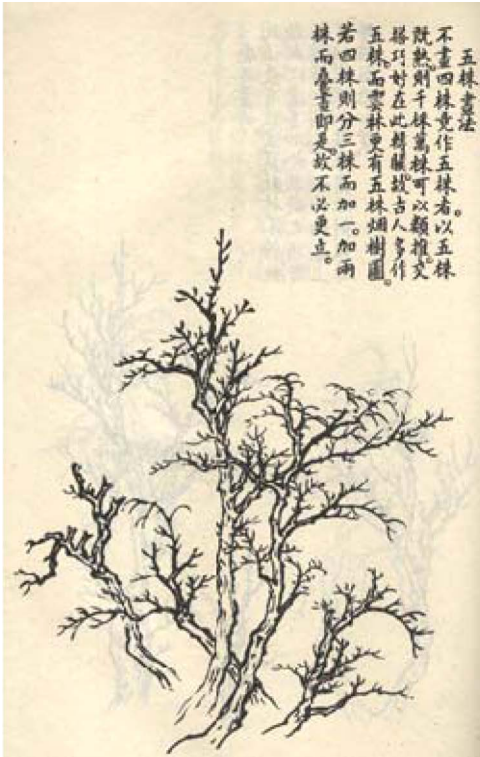 五株畫法
不畫四株竟作五株者。以五株
既熟。則千株萬株可以類推。交
搭巧妙在此轉關。故古人多作
五株。而雲林更有五株烟樹圖。
若四株則分三株而加一。加兩
株而疊畫即是。故不必更立。